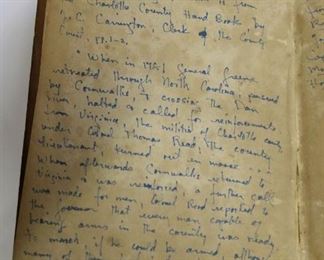 from
Charlotte County Hand Book by
J. C. Carrington, Clerk of the County
Court, pp. 1-2,
"When in 1781 General Greene
retreated through North Carolina, pursued
by Cornwallis & crossing the Dan
river, halted & called for reinforcements
from Virginia, the militia of Charlotte county
under Colonel Thomas Read, the county
lieutenant, turned out in masse . . .
When afterwards Cornwallis returned to
Virginia & was reinforced a further call
was made for men, Colonel Read reported to
the governor that every man capable of
bearing arms in the county was ready
to march if he could be armed, although
many of the